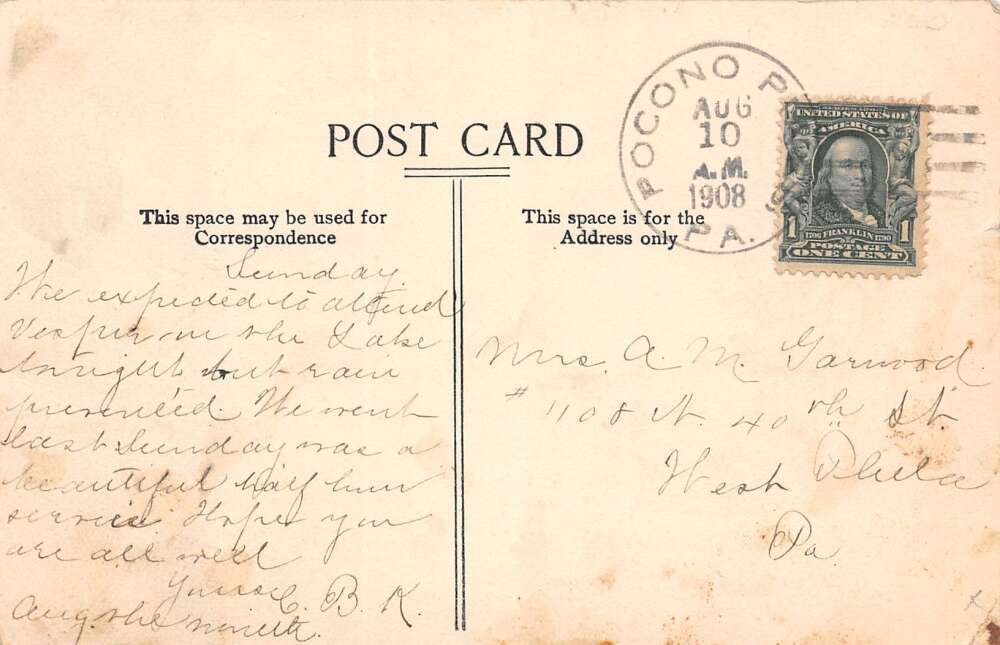 POST CARD
This space may be used for
Correspondence
This space is for the
Address only
POCONO P
AUG
10
A.M.
1908
PA.
UNITED STATES OF
AMERICA
1706 FRANKLIN 1790
POSTAGE
1 ONE CENT 1
Sunday
We expected to attend
Vesper on the Lake
tonight but rain
prevented. We went
last Sunday was a
beautiful half hour
service. Hope you
are all well
Yours C. B. K.
Aug. the nineth.
Mrs. A. M. Garwood.
# 1108 N. 40th St.
West Phila
Pa